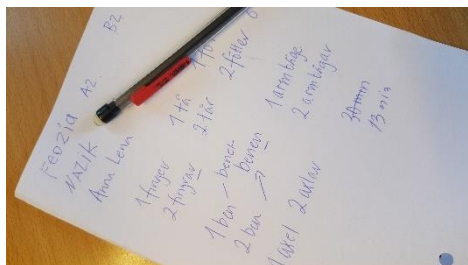 B2
A2
FEOZIA
NAZIK
Anna Lena
1 finger
2 fingrar
1 tå
2 tår
2 fötter
1 ben - benet
2 ben → benen
1 armbåge
2 armbågar
1 axel 2 axlar
13 min